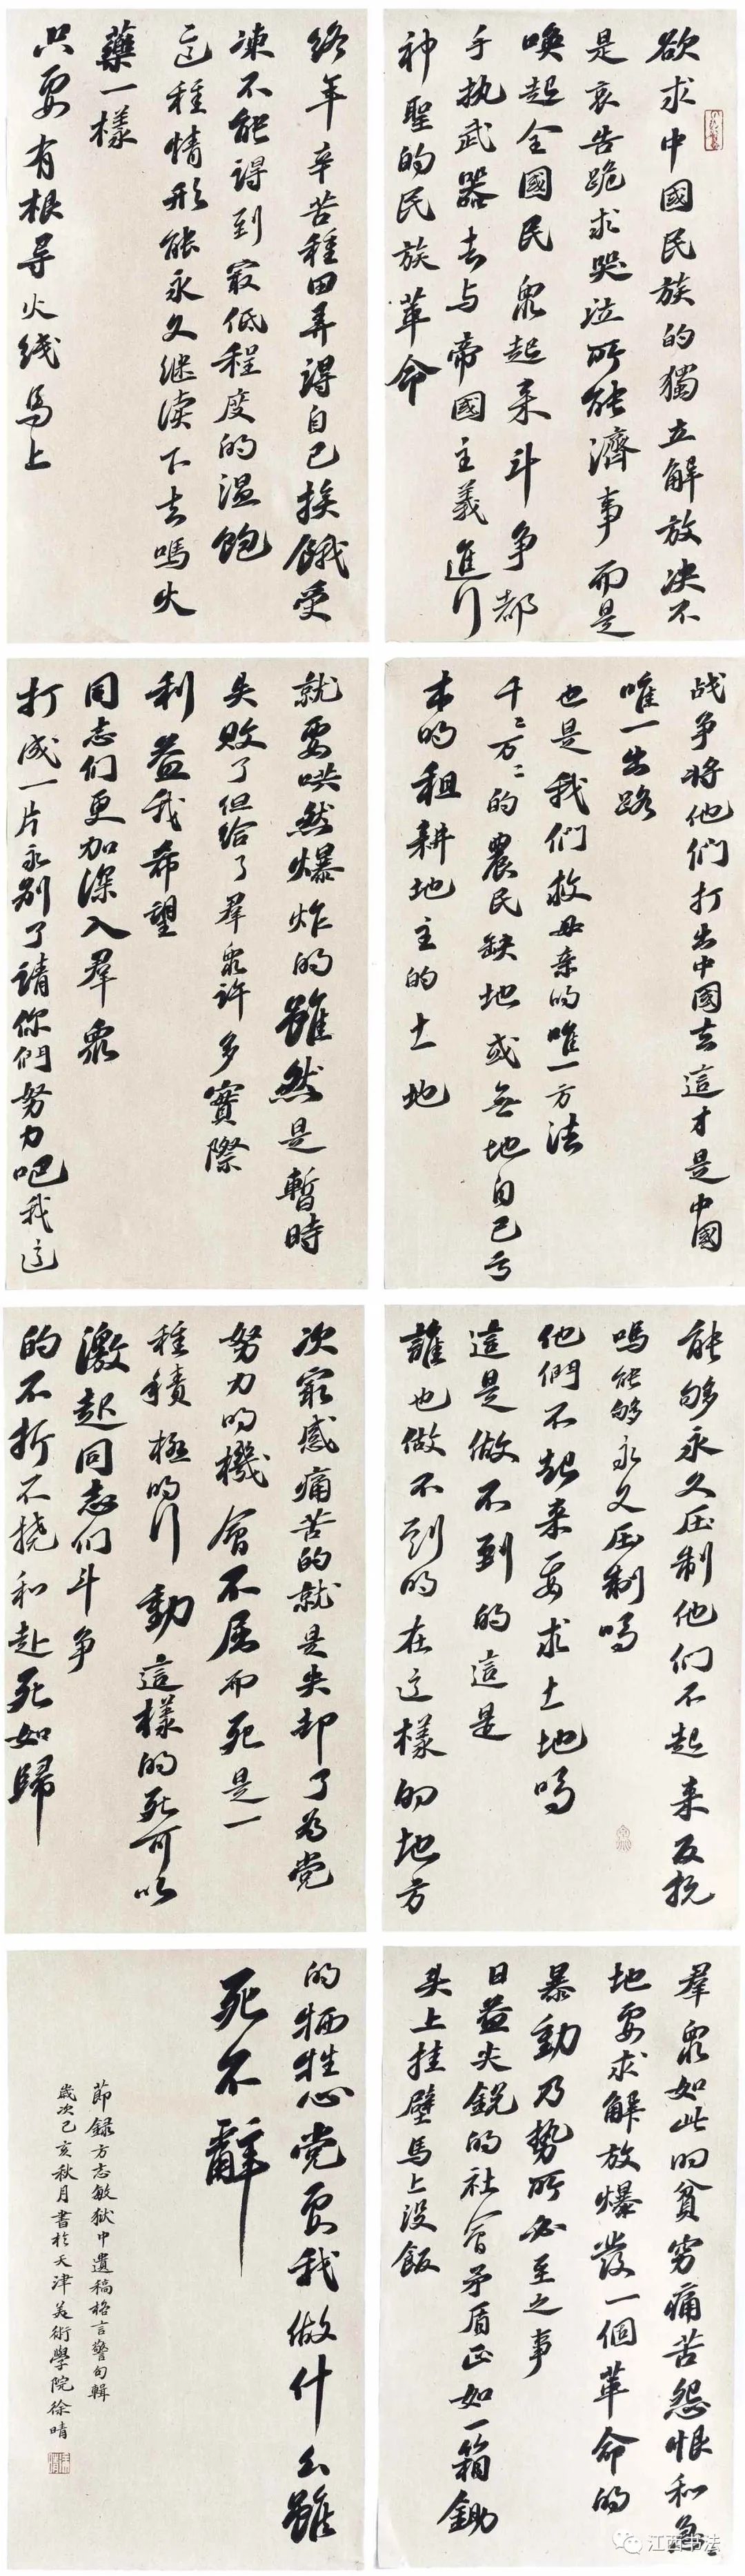 欲求中國民族的獨立解放决不
是哀告跪求哭泣所能濟事而是
唤起全國民眾起来斗争都
手执武器去与帝國主義進行
神聖的民族革命
战争将他们打出中國去這才是中國
唯一出路
也是我們救母亲的唯一方法
千千万万的農民缺地或無地自己亏
本的租耕地主的土地
能够永久压制他们不起来反抗
嗎能够永久压制嗎
他們不起来要求土地嗎
這是做不到的這是
誰也做不到的在这樣的地方
羣眾如此的貧穷痛苦怨恨和急急
地要求解放爆發一個革命的
暴動乃势所必至之事
日益尖銳的社會矛盾正如一箱鋤
头上挂壁馬上没飯
终年辛苦種田弄得自己挨餓受
凍不能得到最低程度的温飽
这種情形能永久继续下去嗎火
藥一樣
只要有根导火线馬上
就要哄然爆炸的雖然是暫時
失败了但给了羣眾許多實際
利益我希望
同志们更加深入羣眾
打成一片永别了請你們努力吧我这
次最感痛苦的就是失却了为党
努力的機會不屈而死是一
種積極的行動這樣的死可以
激起同志们斗争
的不折不挠和赴死如歸
的牺牲心党要我做什么雖
死不辭
節録方志敏狱中遺稿格言警句輯
歲次己亥秋月書於天津美術學院徐晴
江西书法